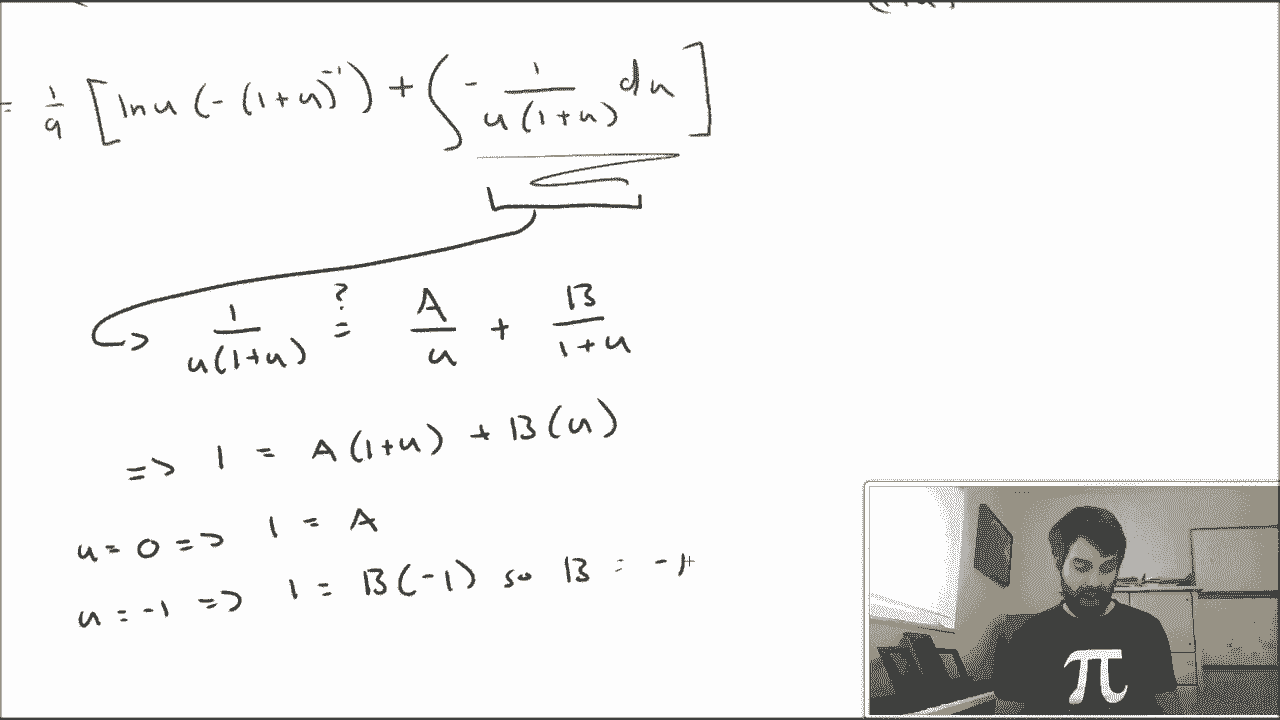 = 1/9 [ ln u (-(1+u)^-1) + ∫ - 1/(u(1+u)) du ]
1/(u(1+u)) ?= A/u + B/(1+u)
=> 1 = A(1+u) + B(u)
u = 0 => 1 = A
u = -1 => 1 = B(-1) so B = -1
π